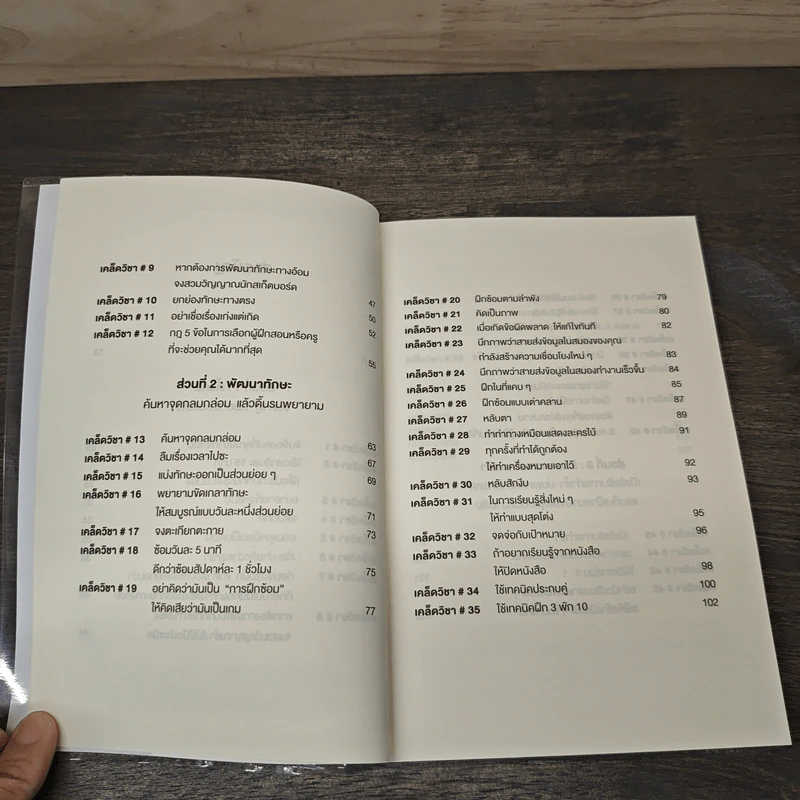 เคล็ดวิชา # 9 หากต้องการพัฒนาทักษะทางอ้อม
จงสวมวิญญาณนักสเก็ตบอร์ด 47
เคล็ดวิชา # 10 ยกย่องทักษะทางตรง 50
เคล็ดวิชา # 11 อย่าเชื่อเรื่องเก่งแต่เกิด 52
เคล็ดวิชา # 12 กฎ 5 ข้อในการเลือกผู้ฝึกสอนหรือครู
ที่จะช่วยคุณได้มากที่สุด 55
ส่วนที่ 2 : พัฒนาทักษะ
ค้นหาจุดกลมกล่อม แล้วดิ้นรนพยายาม
เคล็ดวิชา # 13 ค้นหาจุดกลมกล่อม 63
เคล็ดวิชา # 14 ลืมเรื่องเวลาไปซะ 67
เคล็ดวิชา # 15 แบ่งทักษะออกเป็นส่วนย่อย ๆ 69
เคล็ดวิชา # 16 พยายามขัดเกลาทักษะ
ให้สมบูรณ์แบบวันละหนึ่งส่วนย่อย 71
เคล็ดวิชา # 17 จงตะเกียกตะกาย 73
เคล็ดวิชา # 18 ซ้อมวันละ 5 นาที
ดีกว่าซ้อมสัปดาห์ละ 1 ชั่วโมง 75
เคล็ดวิชา # 19 อย่าคิดว่ามันเป็น “การฝึกซ้อม”
ให้คิดเสียว่ามันเป็นเกม 77
เคล็ดวิชา # 20 ฝึกซ้อมตามลำพัง 79
เคล็ดวิชา # 21 คิดเป็นภาพ 80
เคล็ดวิชา # 22 เมื่อเกิดข้อผิดพลาด ให้แก้ไขทันที 82
เคล็ดวิชา # 23 นึกภาพว่าสายส่งข้อมูลในสมองของคุณ
กำลังสร้างความเชื่อมโยงใหม่ ๆ 83
เคล็ดวิชา # 24 นึกภาพว่าสายส่งข้อมูลในสมองทำงานเร็วขึ้น 84
เคล็ดวิชา # 25 ฝึกในที่แคบ ๆ 85
เคล็ดวิชา # 26 ฝึกซ้อมแบบเต่าคลาน 87
เคล็ดวิชา # 27 หลับตา 89
เคล็ดวิชา # 28 ทำท่าทางเหมือนแสดงละครใบ้ 91
เคล็ดวิชา # 29 ทุกครั้งที่ทำได้ถูกต้อง
ให้ทำเครื่องหมายเอาไว้ 92
เคล็ดวิชา # 30 หลับสักงีบ 93
เคล็ดวิชา # 31 ในการเรียนรู้สิ่งใหม่ ๆ
ให้ทำแบบสุดโต่ง 95
เคล็ดวิชา # 32 จดจ่อกับเป้าหมาย 96
เคล็ดวิชา # 33 ถ้าอยากเรียนรู้จากหนังสือ
ให้ปิดหนังสือ 98
เคล็ดวิชา # 34 ใช้เทคนิคประกบคู่ 100
เคล็ดวิชา # 35 ใช้เทคนิคฝึก 3 พัก 10 102